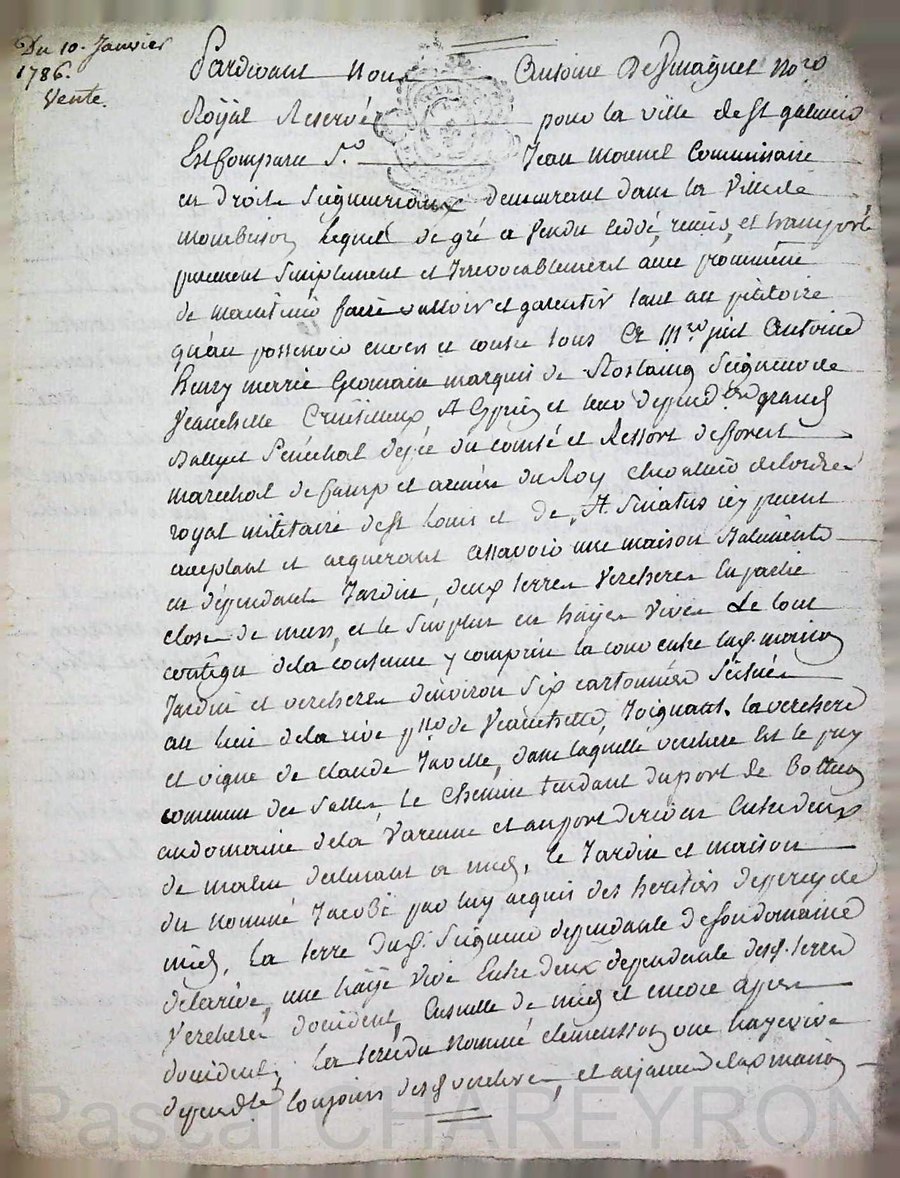 Du 10. Janvier
1786.
Vente.
Pardevant Nous Antoine Desmagnet Nore
Royal Reservé pour la ville de St galmier
Est Comparu Sr. Jean Commissaire
en droits Seigneuriaux demeurant dans la Ville de
montbrison lequel de gré a Vendu ceddé, remis, et transporté
purement Simplement et Irrevocablement avec promesse
de maintenir faire valloir et garentir tant au petitoire
qu'au possessoire envers et contre tous A Mre juit Antoine
henry marie Germain marquis de Rostaing Seigneur de
Veauchette St Cyprien et leurs dépendces grand
Baillyf Sénéchal d'épée du comté et Ressort de forest
marechal de Camp et armées du Roy chevalier de lordre
royal militaire de St Louis et de Sinatus icy présent
acceptant et acquerant assavoir une maison Batiments
en dépendants Jardin, deux terres Vercheres En partie
closes de murs, et le Surplus en hayes vives Le tout
contigu de la contenue y compris la cour entre lad. maison
Jardin et vercheres d'environ Six cartonnées Scitués
au lieu de la rive psse de Veauchette, Joignant la verchere
et vigne de claude Javelle, dans laquelle verchere Est le puy
commun des Salles, Le Chemin tendant du port de
au domaine de la Varenne et au port de rivas Entre deux
de matin declinant a midy, le Jardin et maison
du nommé Jacob par luy acquis des heritiers de
midy, La terre dud. Seigneur dépendante de son domaine
de la rive, une haÿe vive Entre deux dépendante desd. terres
Vercheres d'occident, Ensuitte de midy et encore après
d'occident, La terre du nommé clemensson une haye vive
dépendte toujours desd vercheres, et de lad maison
Pascal CHAREYRON